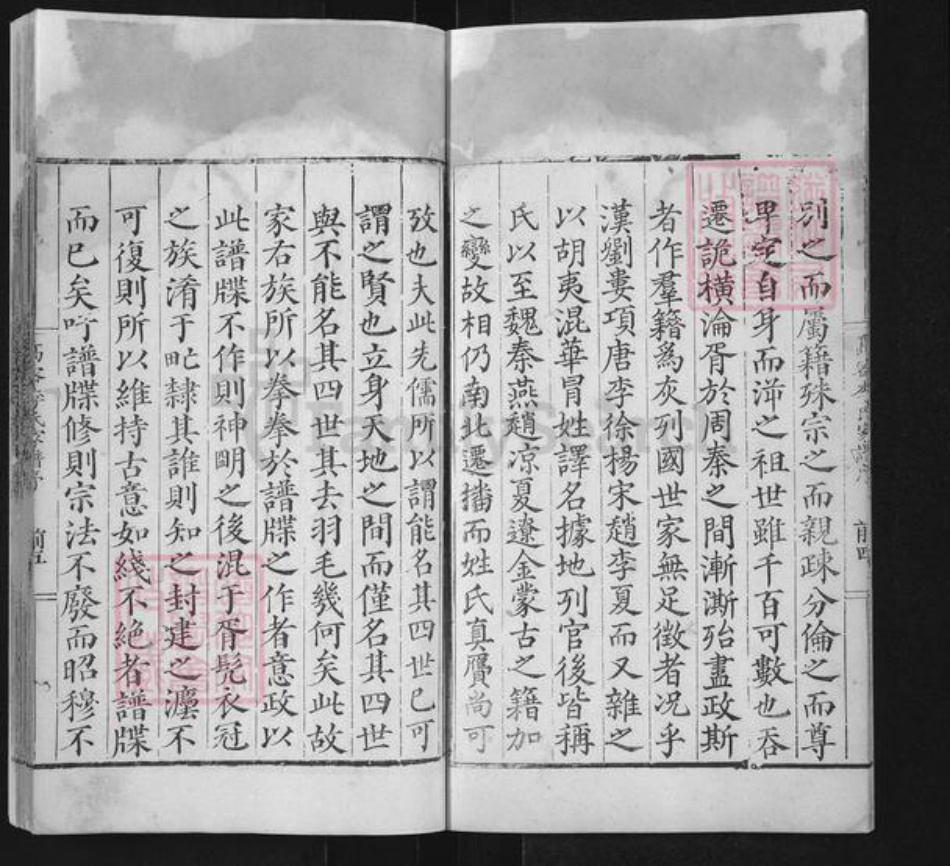 別之而屬籍殊宗之而親疎分倫之而尊
卑定自身而泝之祖世雖千百可數也吞
遷詭橫淪胥於周秦之間漸澌殆盡政斯
者作羣籍爲灰列國世家無足徵者况乎
漢劉婁項唐李徐楊宋趙李夏而又雜之
以胡夷混華冒姓譯名據地列官後皆稱
氏以至魏秦燕趙凉夏遼金蒙古之籍加
之變故相仍南北遷播而姓氏真贗尚可
攷也夫此先儒所以謂能名其四世已可
謂之賢也立身天地之間而僅名其四世
與不能名其四世其去羽毛幾何矣此故
家右族所以拳拳於譜牒之作者意政以
此譜牒不作則神明之後混于胥髡衣冠
之族淆于甿隸其誰則知之封建之㢆不
可復則所以維持古意如綫不絶者譜牒
而已矣吁譜牒修則宗法不廢而昭穆不
前四
前五
FamilySearch